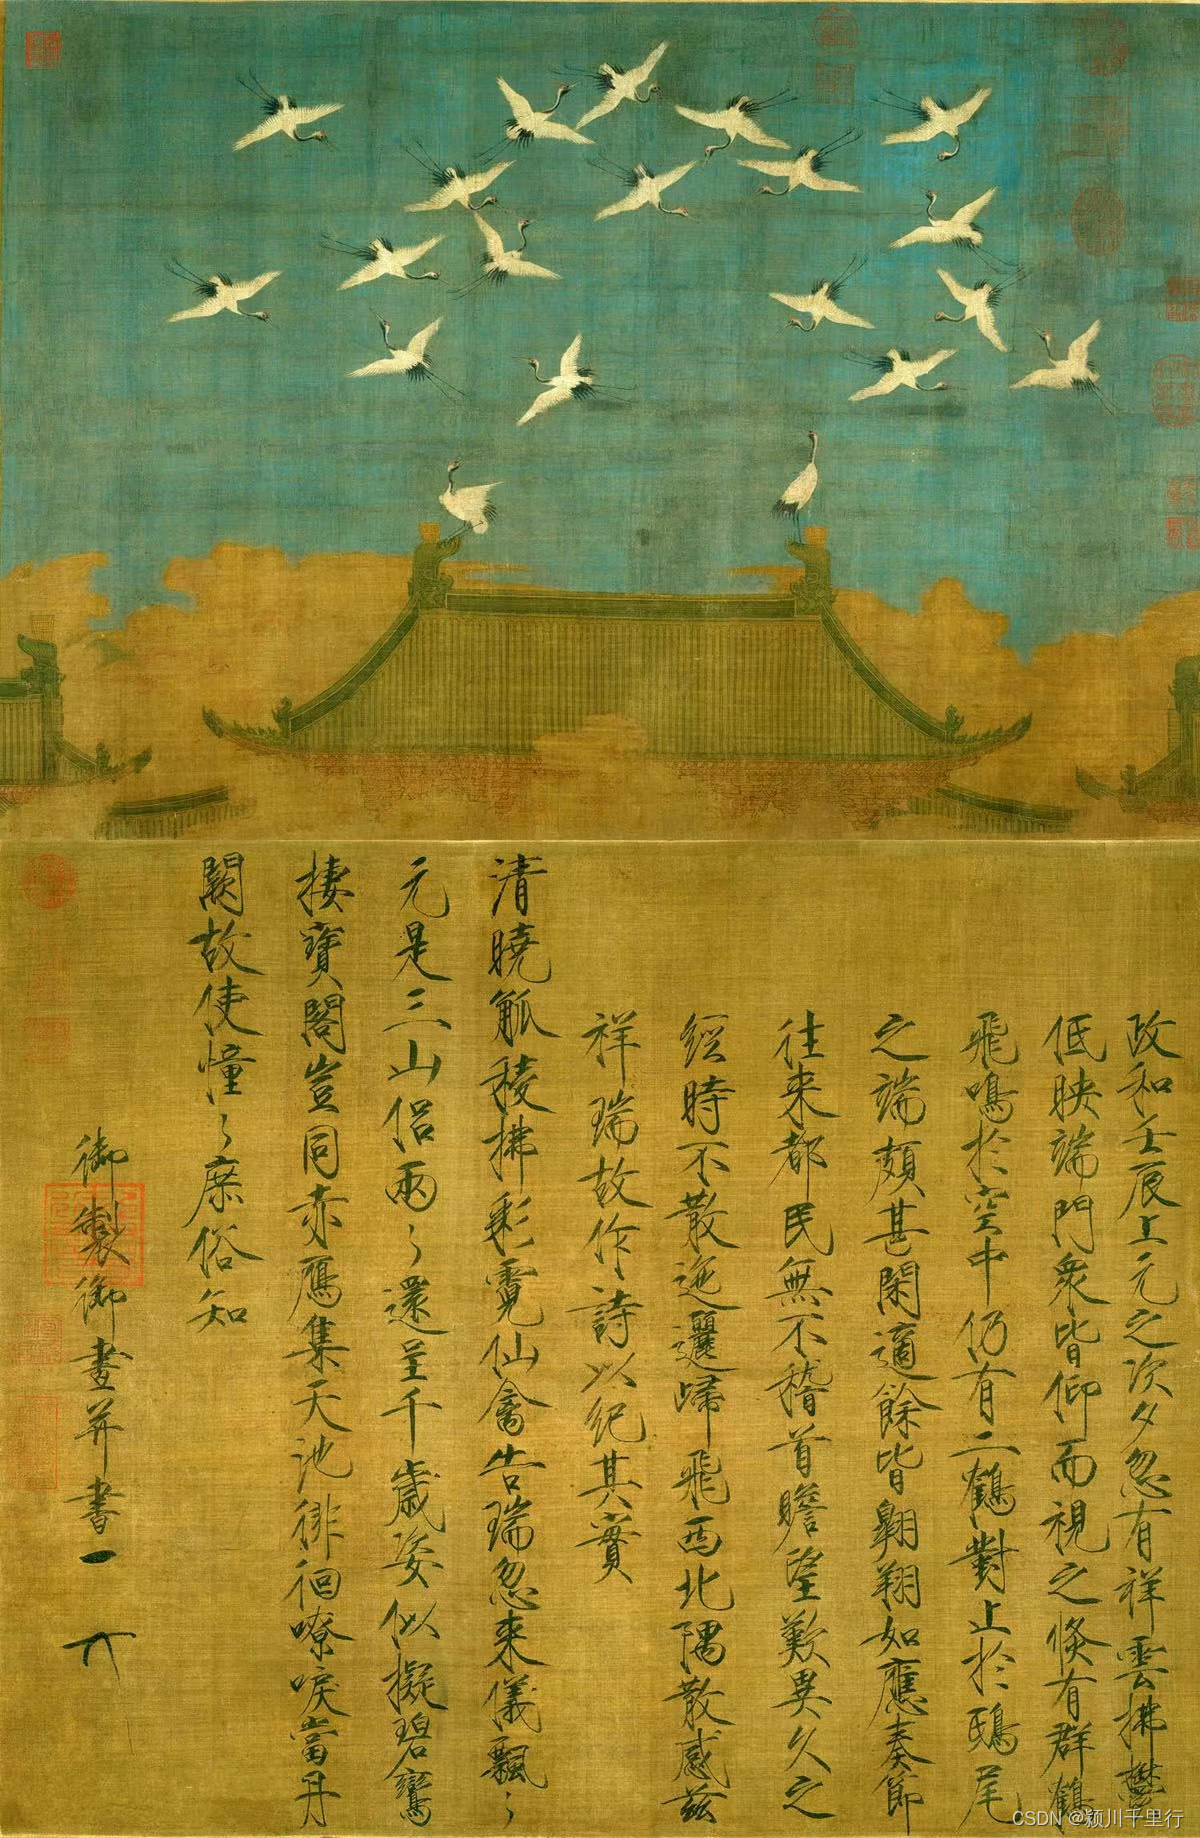 政和壬辰上元之次夕忽有祥雲拂鬱
低映端門衆皆仰而視之倐有群鶴
飛鳴於空中仍有二鶴對止於鴟尾
之端頗甚閑適餘皆翱翔如應奏節
往来都民無不稽首瞻望歎異久之
經時不散迤邐歸飛西北隅散感兹
祥瑞故作詩以紀其實
清曉觚稜拂彩霓仙禽告瑞忽来儀飄〻
元是三山侣兩〻還呈千歲姿似擬碧鸞
棲寶閣豈同赤鴈集天池徘徊嘹唳當丹
闕故使憧〻庶俗知
御製御畫并書
CSDN @颍川千里行